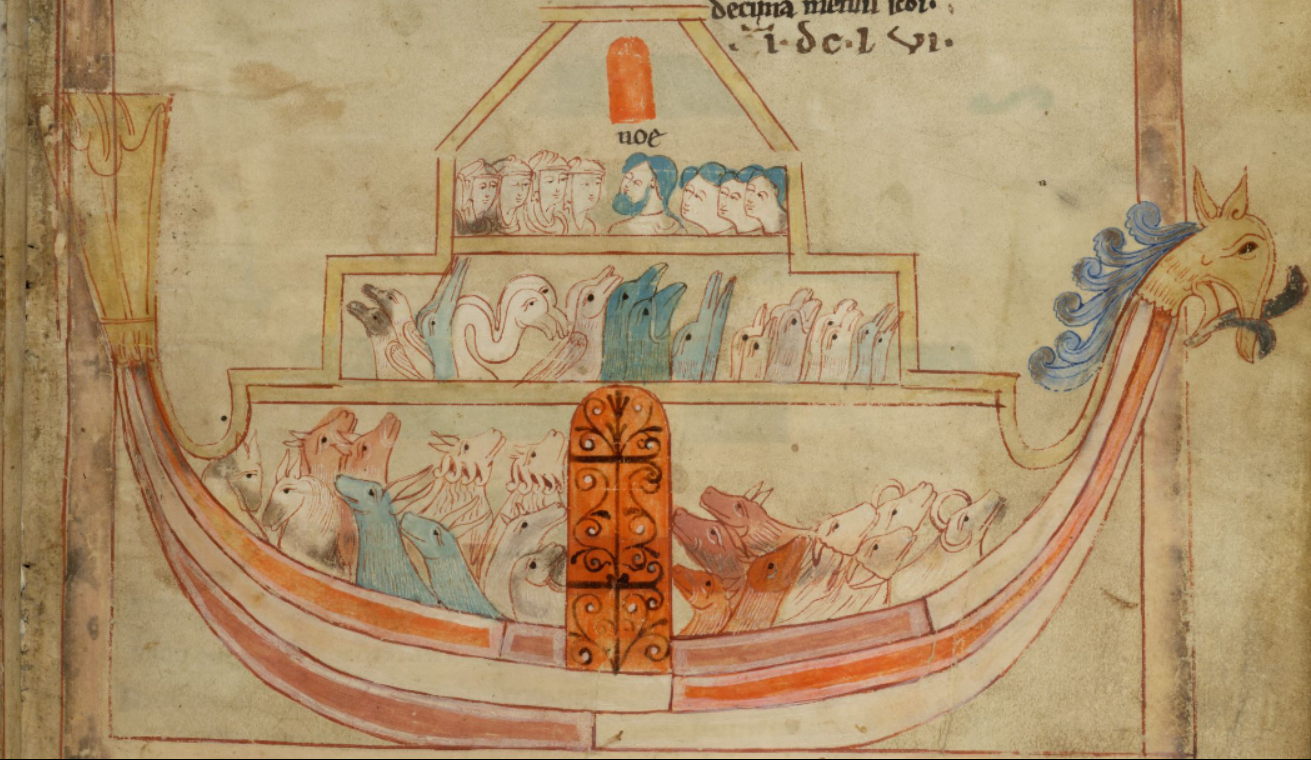 decima mensis
i·dc·l vi·
noe